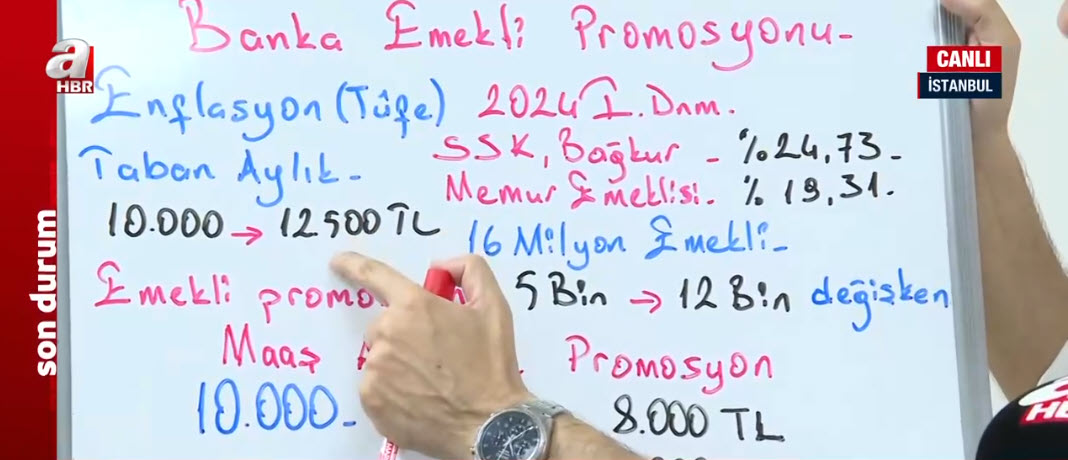 Banka Emekli Promosyonu-
a
HBR
CANLI
İSTANBUL
Enflasyon (Tüfe) 2024 I. Dnm.
SSK, Bağkur - %24,73-
Taban Aylık-
Memur Emeklisi. %19,31.
10.000 → 12.500 TL
16 Milyon Emekli-
Emekli 5 Bin → 12 Bin değişken
son durum
Maaş Promosyon
10.000- 8.000 TL